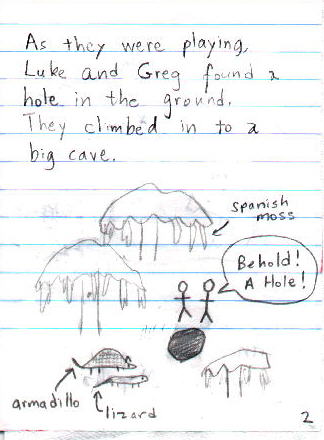 As they were playing,
Luke and Greg found a
hole in the ground.
They climbed in to a
big cave.
Spanish
moss
Behold!
A Hole!
armadillo
lizard
2